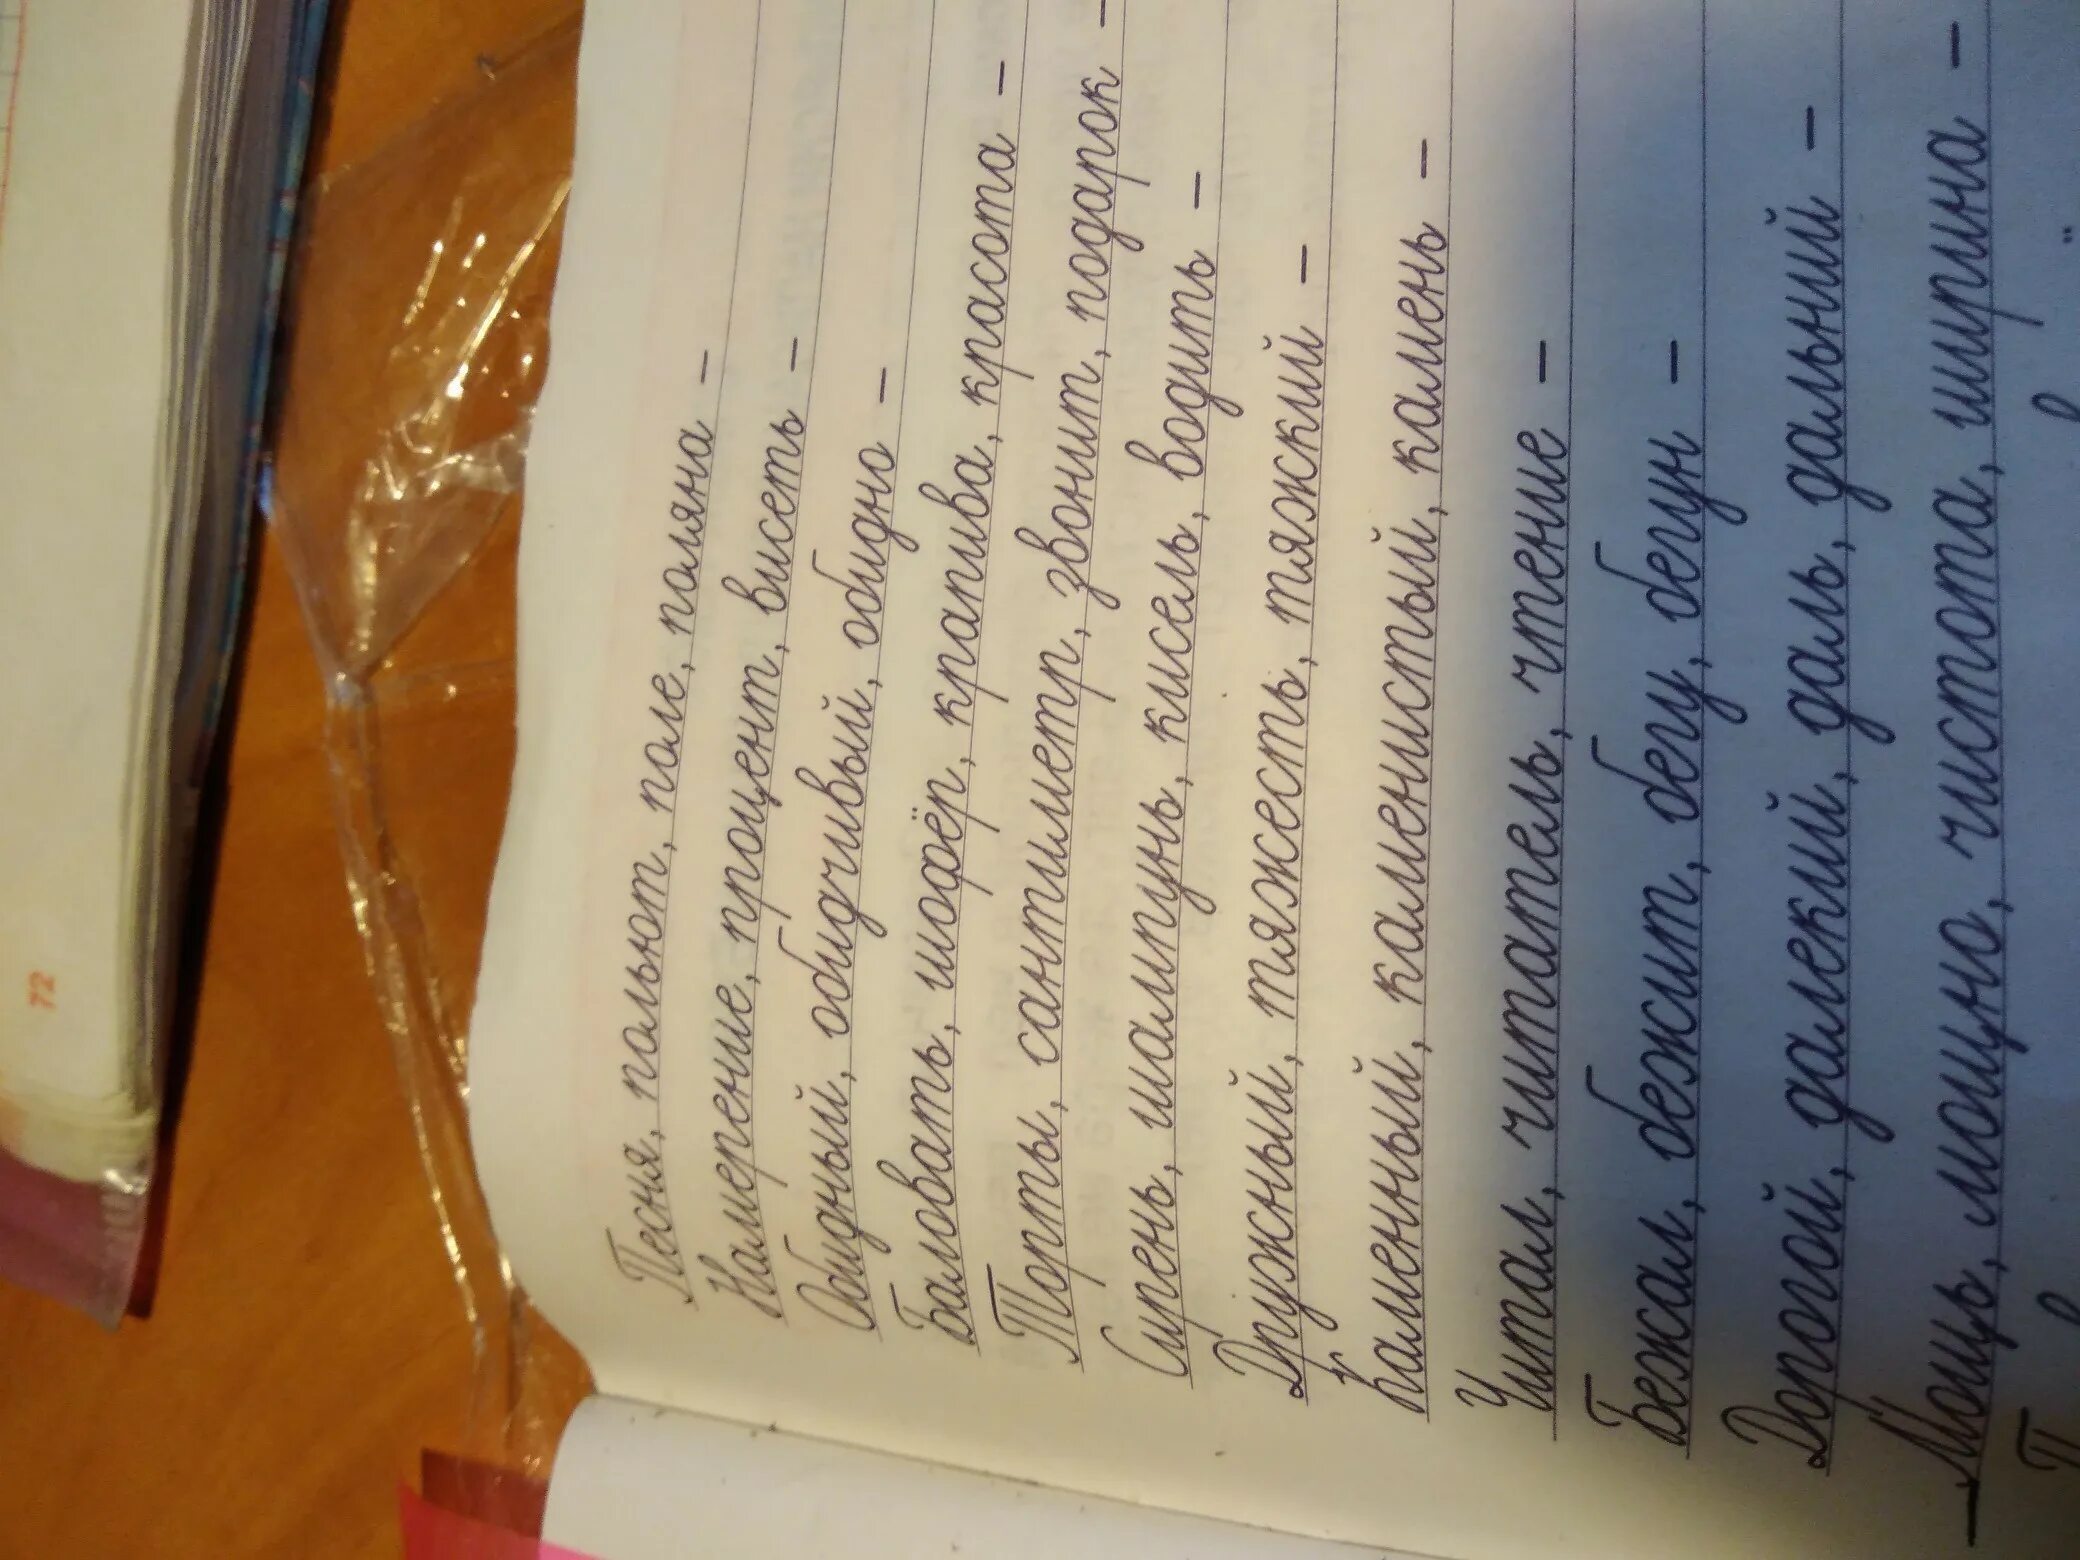 72
Песня, польют, поле, поляна –
Намерение, процент, висеть –
Обидный, обидчивый, обидно –
Баловать, шофёр, крапива, красота –
Торты, сантиметр, звонит, подарок –
Сирень, шампунь, кисель, водить –
Дружный, тяжесть, тяжский –
Каменный, каменистый, камень –
Читал, читатель, чтение –
Бежал, бежит, бегу, бегун –
Дорогой, далекий, даль, дальний –
Мощь, мощно, чистота, ширина –